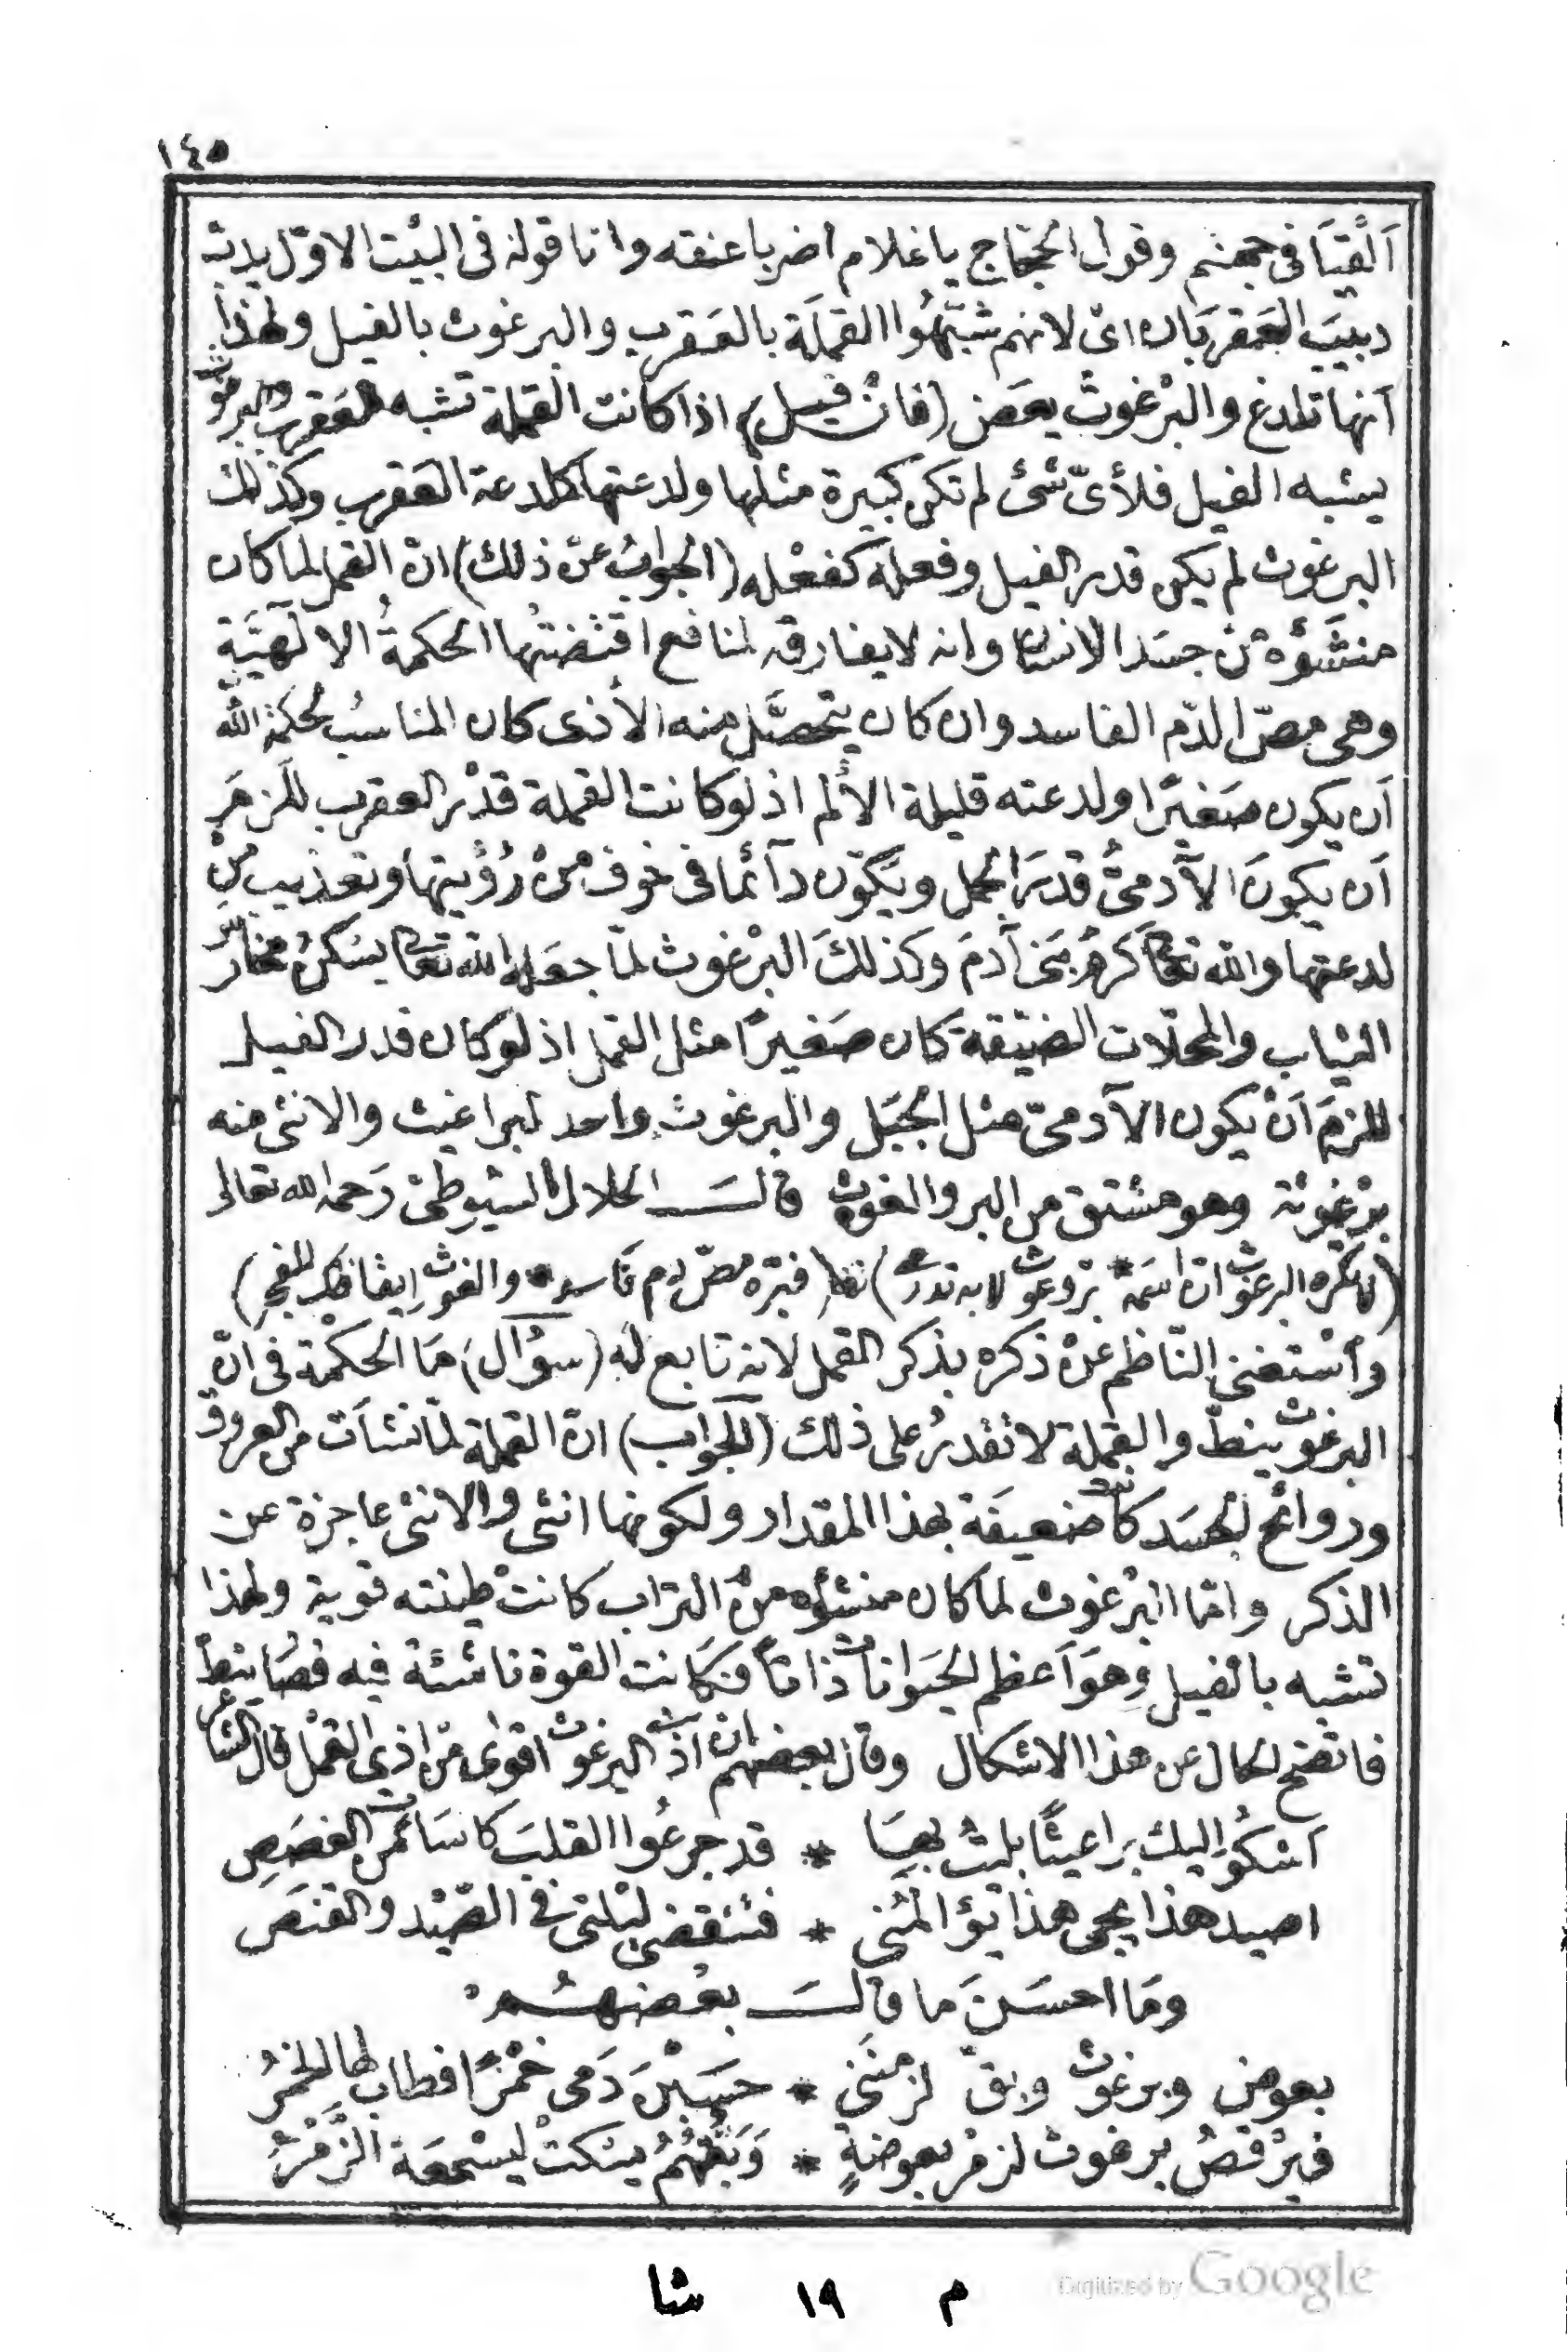 ١٤٥
اَلْقِيَا فى جهنم وقول الحجاج يا غلام اضربا عنقه وانا قوله فى البيْت الاوّل يدبّ
دبيبَ العَقربَان اىْ لانهم شبّهُوا القملَة بالعَقرب والبرغوث بالفيل ولهذا
اَنها تلدغ والبرْغوث يعَض (فانْ قيل) اذا كانت القملة تشبه العقرب والبرغوث
يشبه الفيل فلأىّ شئ لم تكن كبيرة مثلها ولدعتها كلدعة العَقرب وكذلك
البرغوث لم يكن قدر الفيل وفعله كفعْله (الجوابُ عنْ ذلك) انّ القمل لما كان
منشَؤُه منْ جسَد الانسان وانه لا يفارقه لمنافع اقتضتْها الحكمةُ الالَهيَّة
وهى مصّ الدّم الفاسد وان كان يتحصَّل منه الأذى كان المناسبُ لحكمة الله
اَن يكون صَغيرًا ولدعته قليلة الألم اذ لو كانت القملة قدْر العقرب للزمَ
اَن يكونَ الآدمىُّ قدرَ الجمل ويَكون دآئما فى خوف منْ رُؤْيتها وتعذيب منْ
لدعتها والله تعَالى كرم بَنى آدمَ وكذلكَ البرْغوث لمّا جعَله الله تعَالى يسْكنُ
الثياب والمحلّات الضيّقة كان صَغيرًا مثل القمل اذ لو كان قدر الفيل
للزمَ اَنْ يكون الآدمىّ مثل الجبَل والبرغوث واحد البراغيث والانثى منه
برْغوثة وهو مشتق من البر والغوث قالَ الجلال السّيوطىّ رَحمه الله تعالى
(لا تكْره البرغوث انّ اسَمَه * برْغوث لا به تدرى) (فبرّه مصّ دم فاسد * والغوث ايقاظك للفجر)
وأسْتغنى النّاظم عنْ ذكره بذكر القمل لانه تابع له (سؤال) مَا الحكمْة فى انّ
البرغوث ينطّ والقملة لا تقدرُ على ذلك (الجواب) انّ القملة لمّا نشأت من العروق
وروائح الجسَد كانت ضعيفَة بهذا المقدار ولكونها انثى والانثى عاجزة عن
الذكر وامّا البرْغوث لما كان منشؤه منْ التراب كانتْ طينته قوية ولهذا
تشبه بالفيل وهوَ اَعظم الحيَوانات ذاتاً فكَانت القوة ناشئة فيه فصَار ينطّ
فاتضح الحال عن هذا الاشكال وقال بعضهم انّ اذية البرغوث اقوى منْ اذى القمْل قال الشاعر
اَشكوُ اليك براغيثًا بليتُ بهَا * قد جرعُوا القلبَ كاسَات من الغصَصِ
اصيد هذا يجى هذا يؤ المْنى * فتنقضى ليْلتى فى الصّيْد والقنَص
ومَا احسَنَ ما قالَ بعْضهُم
بعوض وبرغوث وبقّ لزمنَنى * حسَبْنَ دَمى خمْرًا فطاب لها الخمرُ
فيرْقصُ برغوث لزمْرِ بعوضةٍ * وَبَقّهُمُ يسْكتْ ليسْمعَة الزَّمْرُ
م ١٩ شا
Digitized by Google